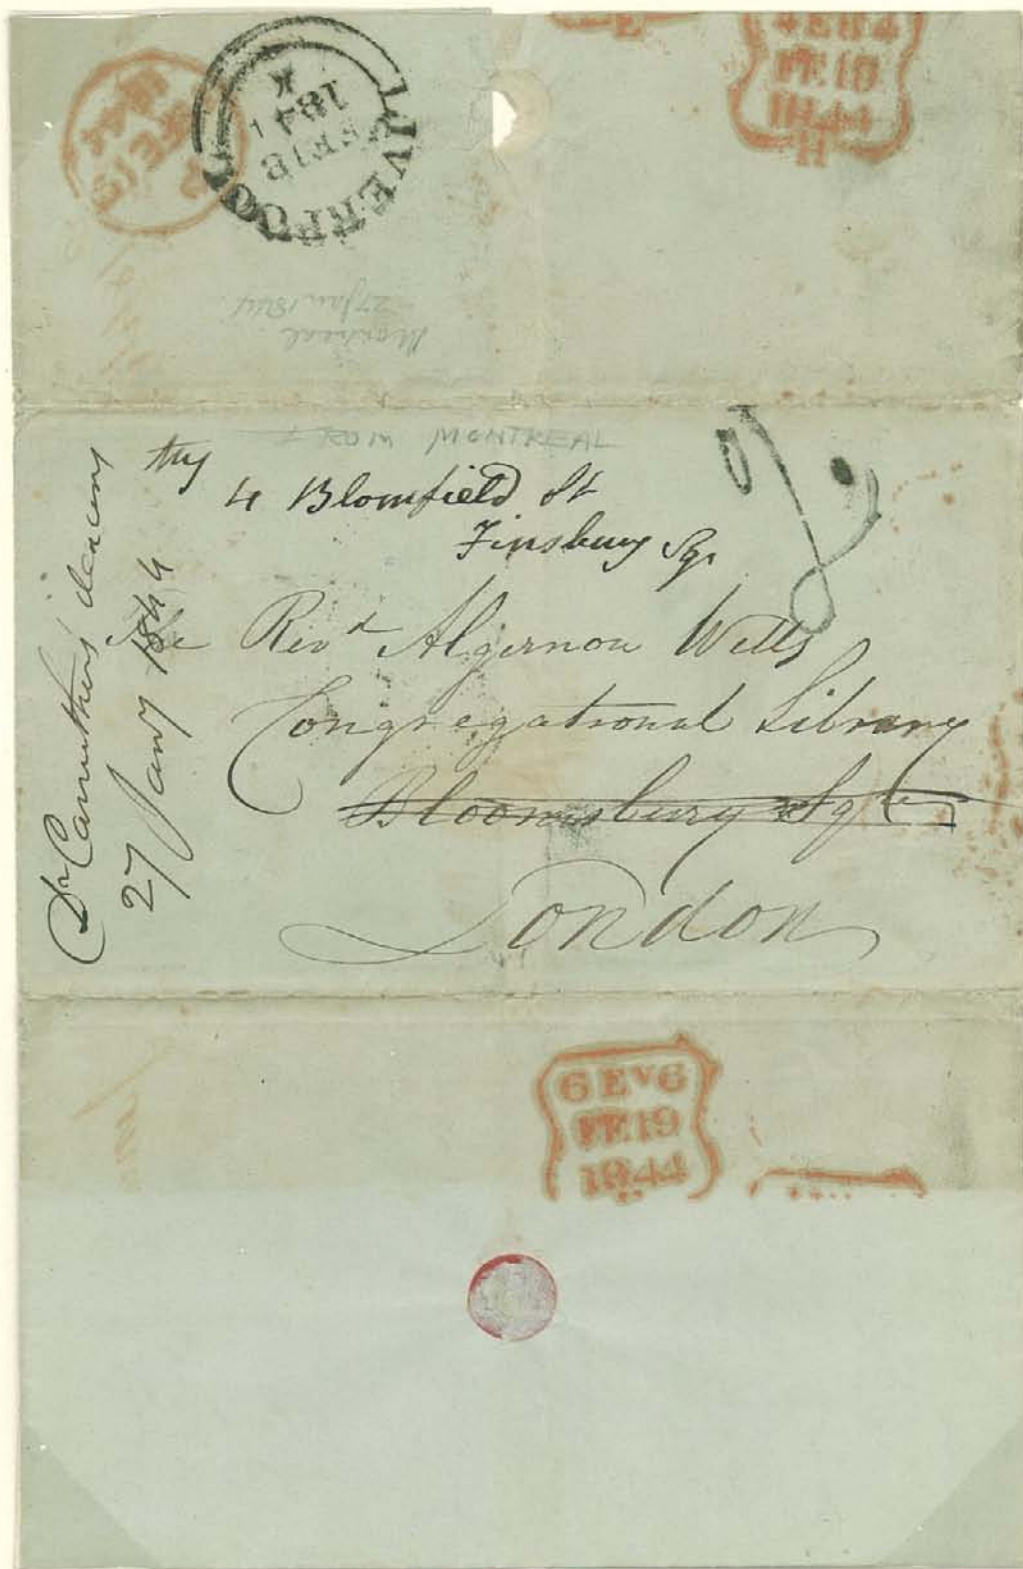 4 EV 4
FE 19
1844
H
LIVERPOOL
FE 18
1844
K
Montreal
27 Jan 1844
FROM MONTREAL
try
4 Blomfield St
Finsbury Sqr
The Revd Algernon Wells
Congregational Library
Bloomsbury Sqre
London
Dr Carruthers
27 Jany 1844
6 EV 6
FE 19
1844